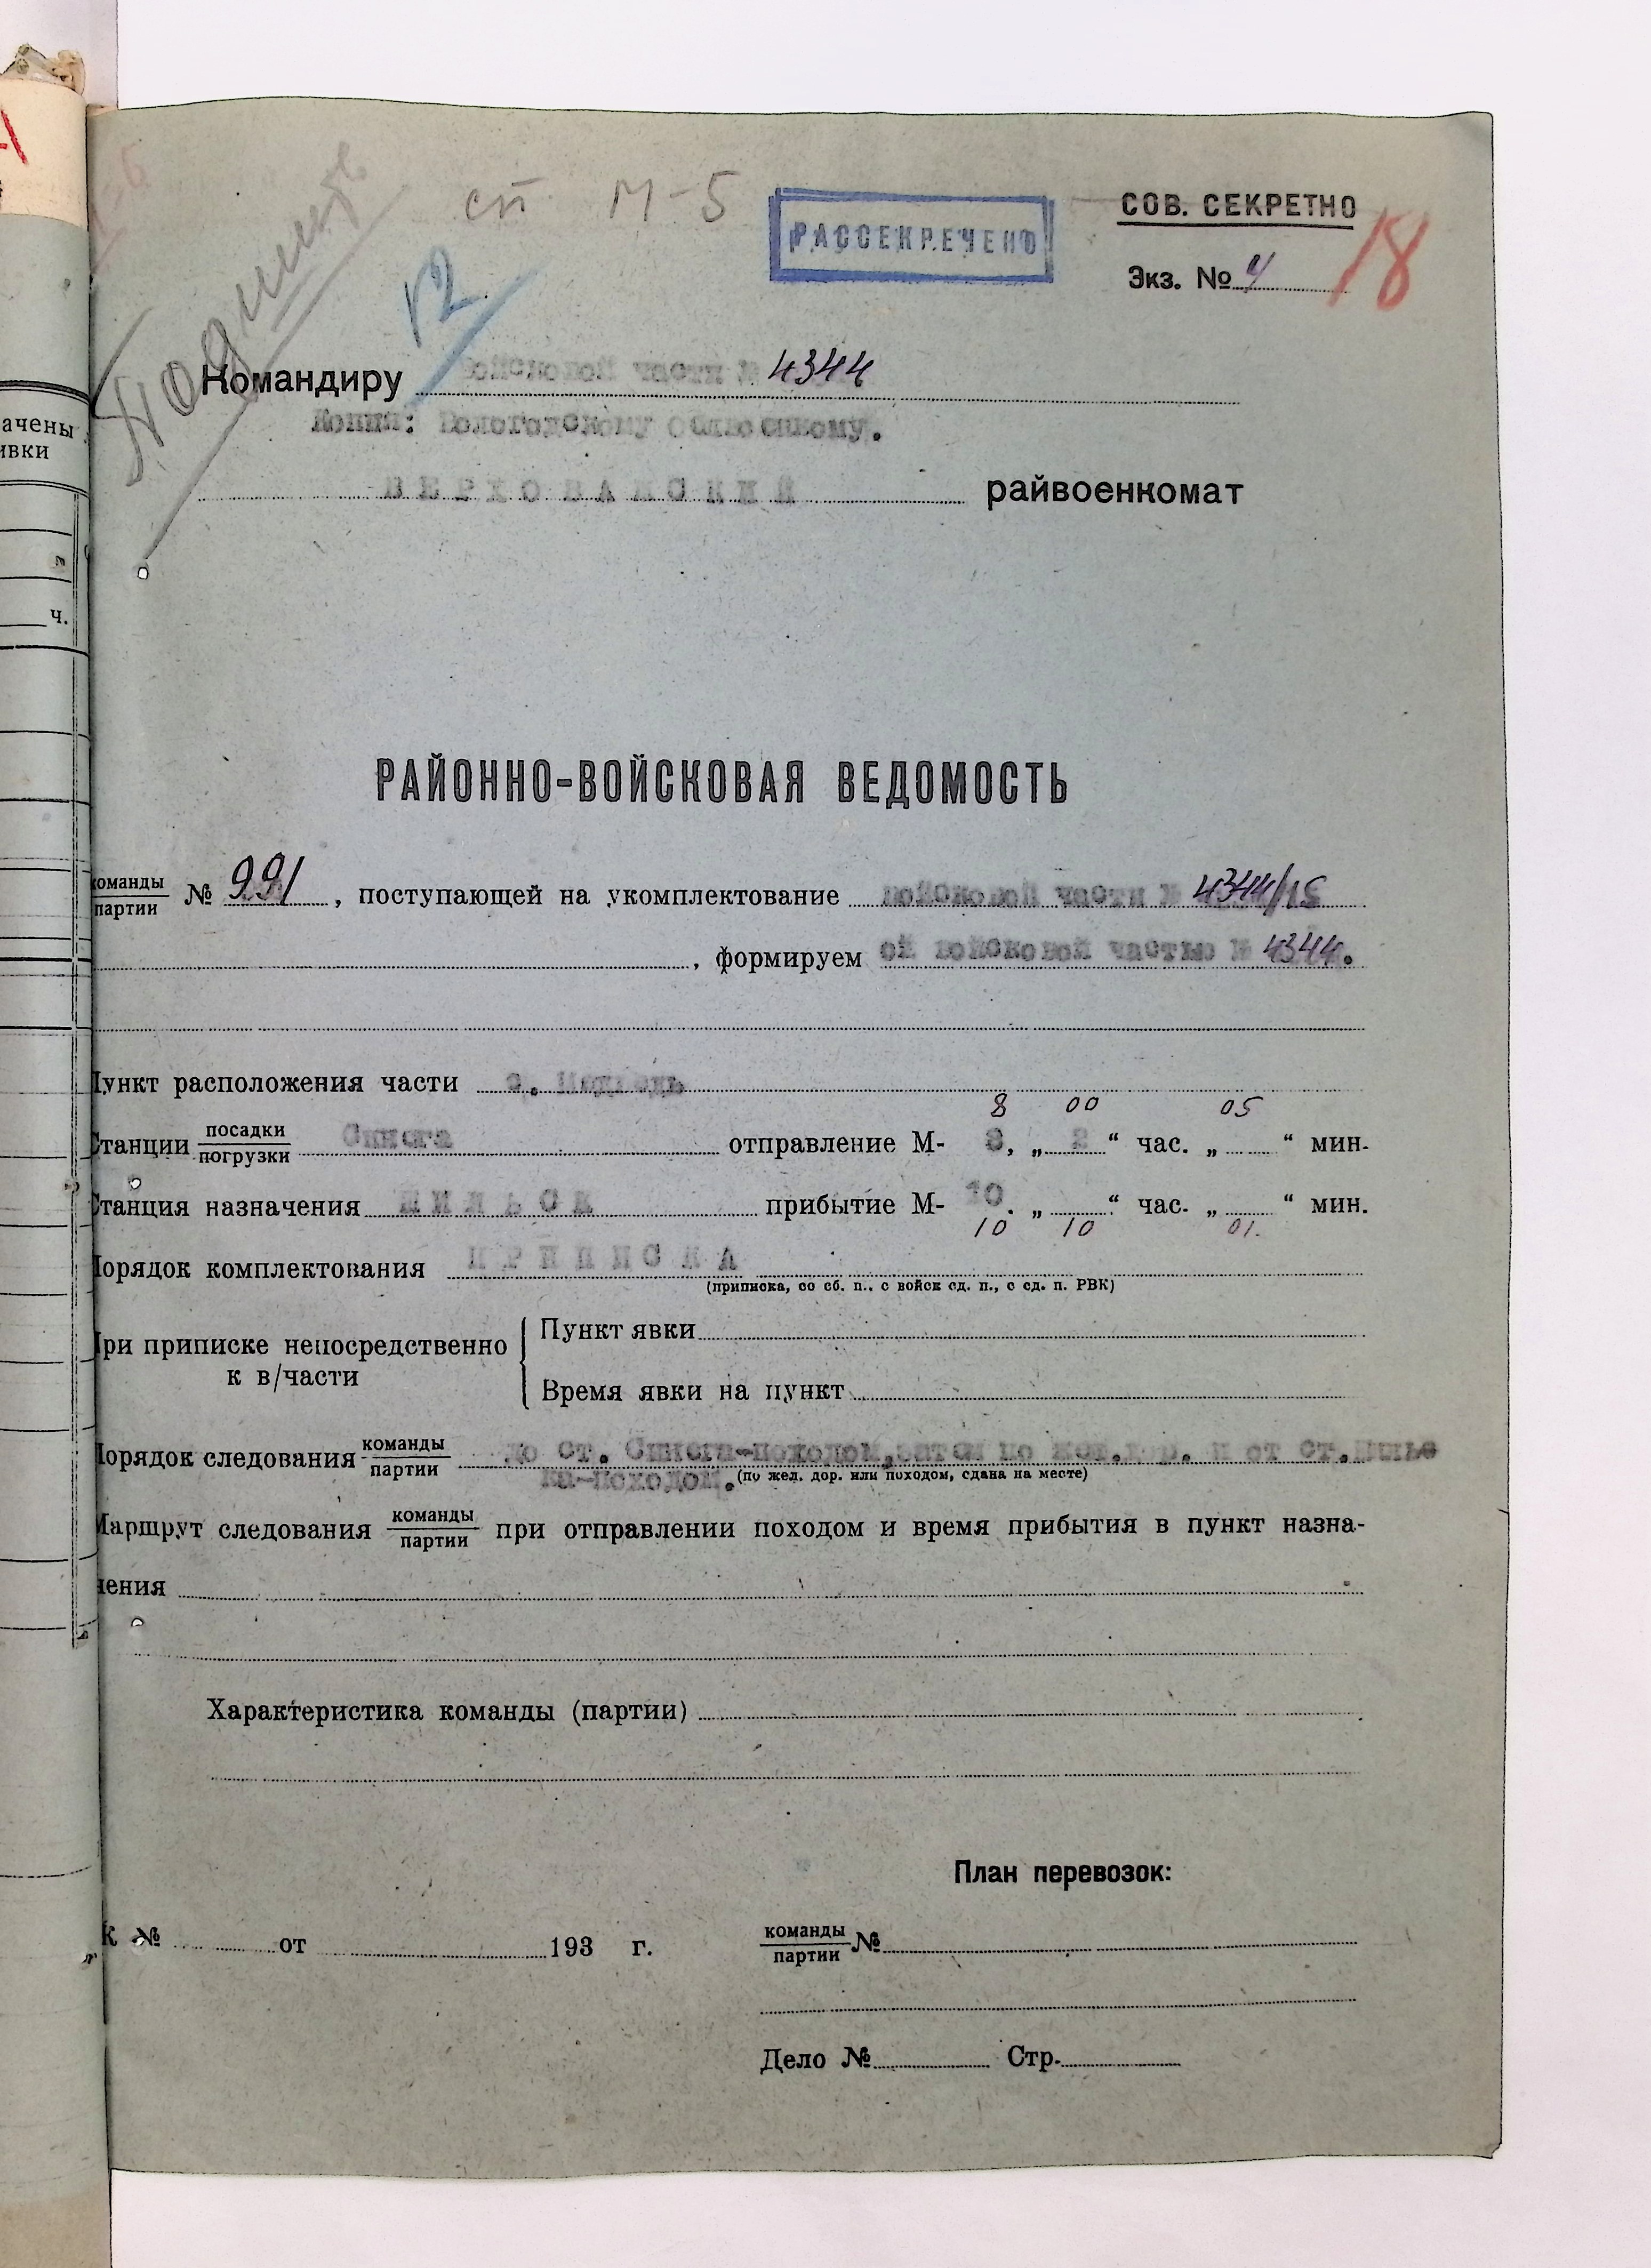 ст. М-5
РАССЕКРЕЧЕНО
СОВ. СЕКРЕТНО
Экз. № 4
18
Подшить
12
Командиру войсковой части № 4344
Копия: Вологодскому Облвоенкому.
ВЕРХОВАЖСКИЙ райвоенкомат
РАЙОННО-ВОЙСКОВАЯ ВЕДОМОСТЬ
команды
партии
№ 991, поступающей на укомплектование войсковой части № 4344/15
, формируемой войсковой частью № 4344.
Пункт расположения части с. Медведь
Станции посадки
погрузки Синега отправление М- 8, „ 2 “ час. „ “ мин.
8 00 05
Станция назначения ШИМЬСК прибытие М- 10. „ “ час. „ “ мин.
10 10 01.
Порядок комплектования ПРИПИСКА
(приписка, со сб. п., с войск сд. п., с сд. п. РВК)
При приписке непосредственно
к в/части
Пункт явки
Время явки на пункт
Порядок следования команды
партии до ст. Синега-походом, затем по жел.дор. и от ст.
-походом. (по жел. дор. или походом, сдана на месте)
Маршрут следования команды
партии при отправлении походом и время прибытия в пункт назна-
чения
Характеристика команды (партии)
План перевозок:
К № от 193 г.
команды
партии №
Дело № Стр.
ачены
ивки
ч.